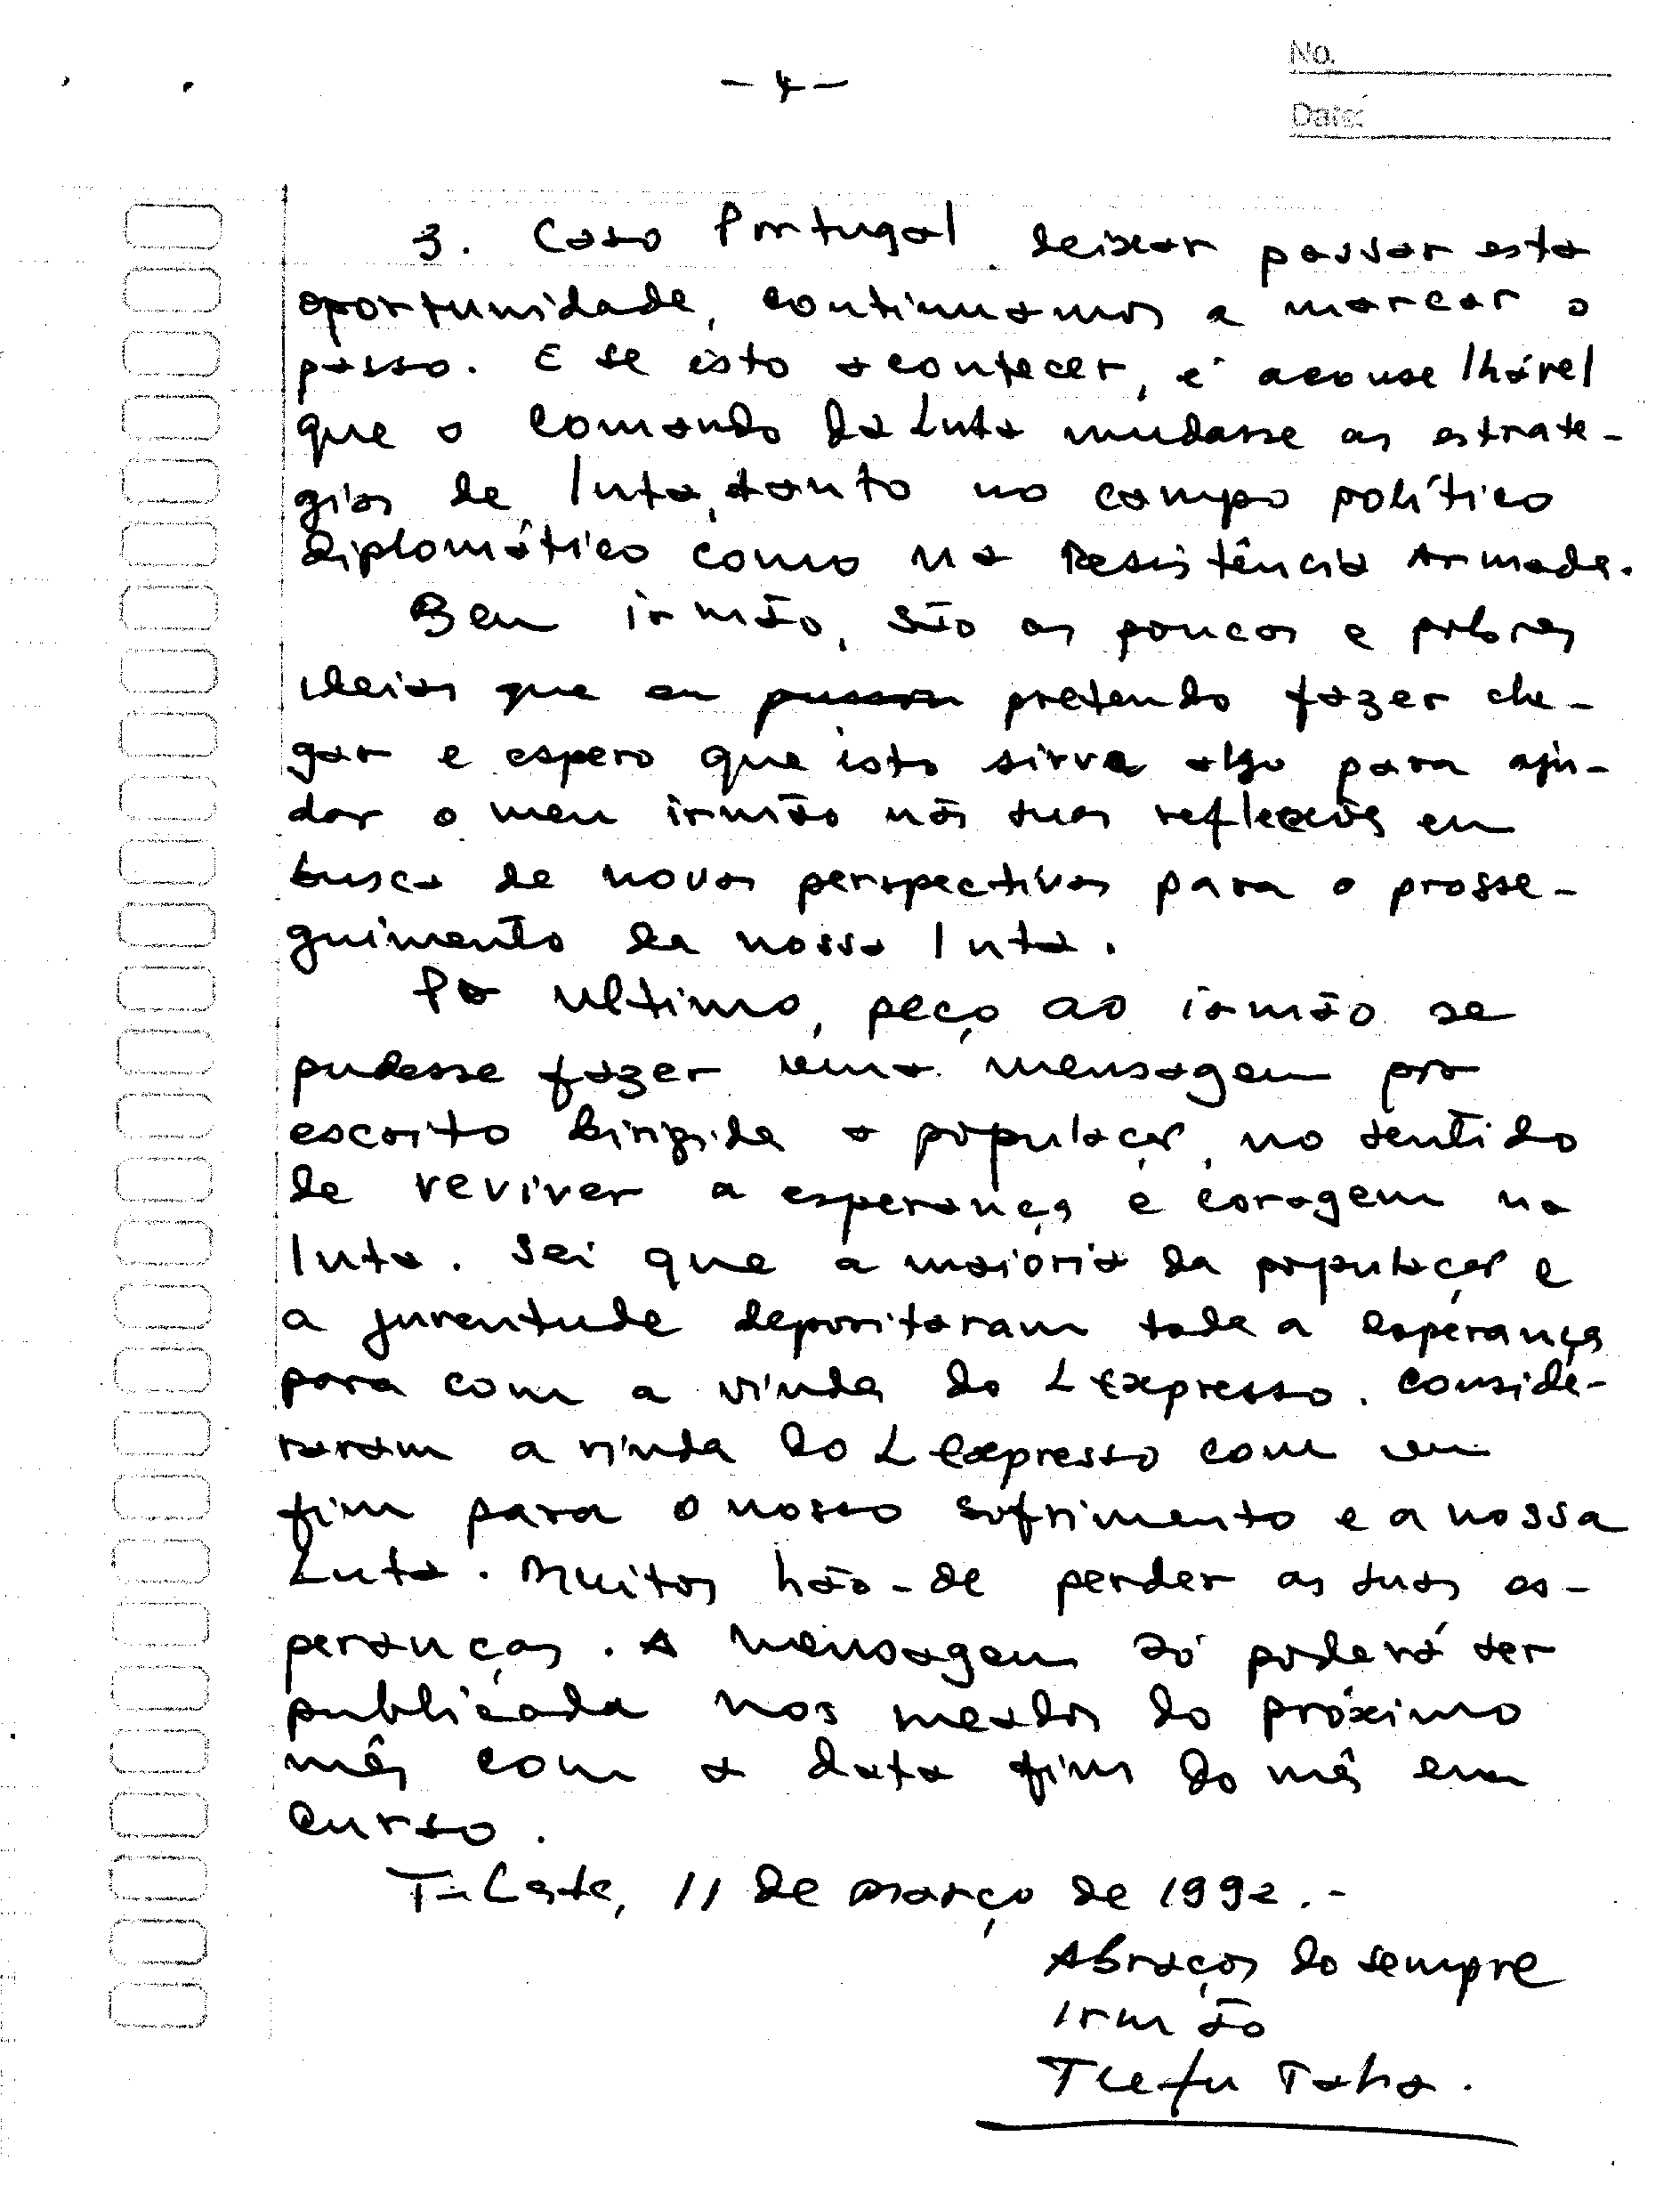 No.
- 4 -
Date:
3. Caso Portugal deixar passar esta
oportunidade, continuamos a marcar o
passo. E se isto acontecer, é aconselhável
que o comando da Luta mudasse as estraté-
gias de luta, tanto no campo político
diplomático como na Resistência Armada.
Bem irmão, são as poucas e pobres
ideias que eu pretendo fazer che-
gar e espero que isto sirva algo para aju-
dar o meu irmão nas suas reflexões em
busca de novas perspectivas para o prosse-
guimento da nossa luta.
Por ultimo, peço ao irmão se
pudesse fazer uma mensagem por
escrito dirigida a população, no sentido
de reviver a esperança e coragem na
luta. Sei que a maioria da população e
a juventude depositaram toda a esperança
para com a vinda do L Expresso. Conside-
raram a vinda do L Expresso com um
fim para o nosso sofrimento e a nossa
Luta. Muitos hão-de perder as suas es-
peranças. A mensagem só poderá ser
publicada nos meados do próximo
mês com a data fim do mês em
curso.
T. Leste, 11 de Março de 1992.-
Abraços do sempre
Irmão